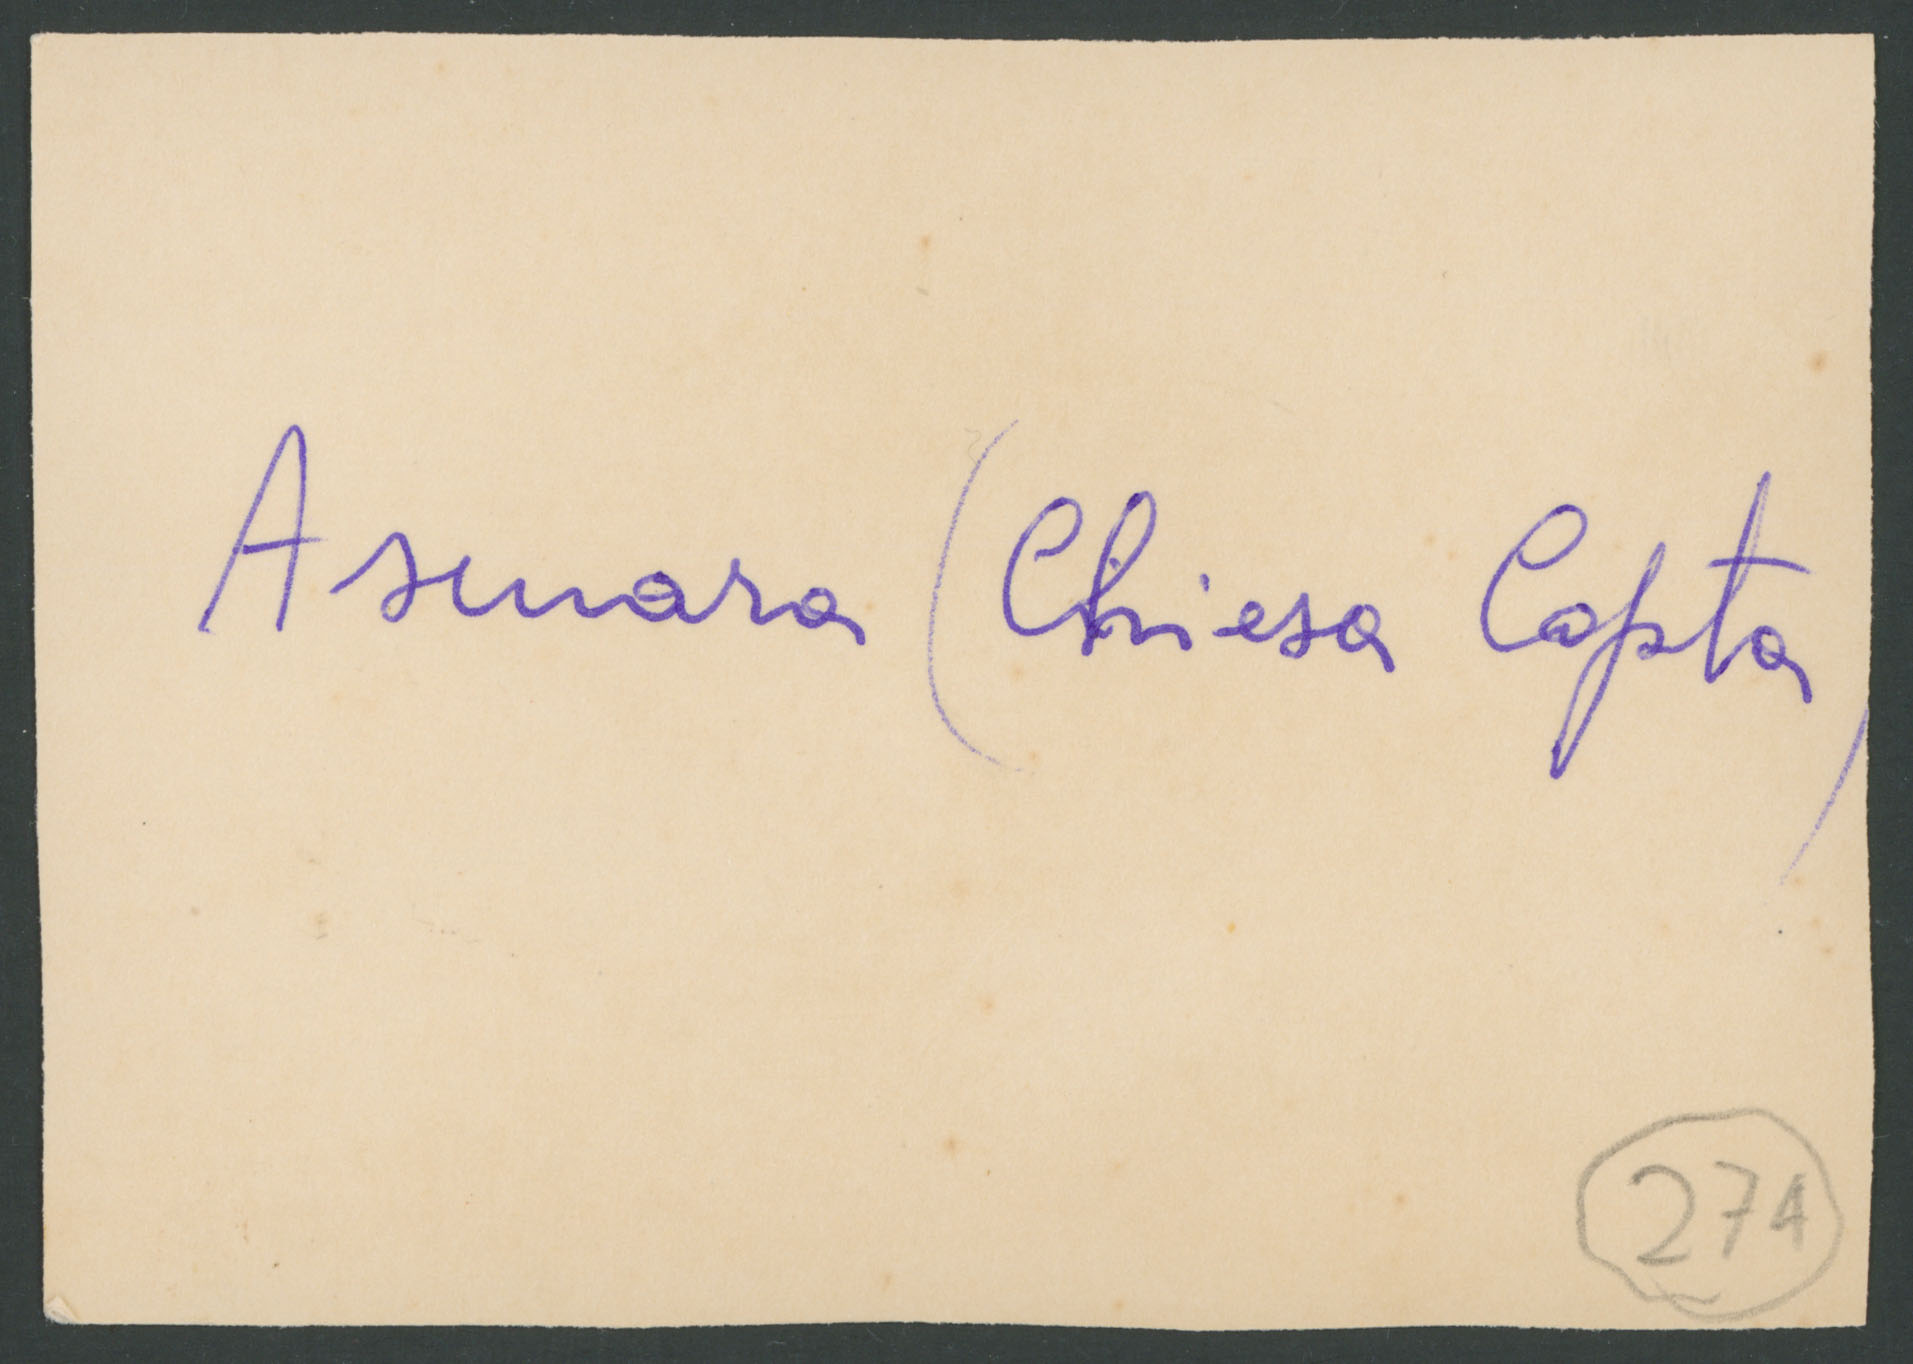 Asmara (Chiesa Copta)
274